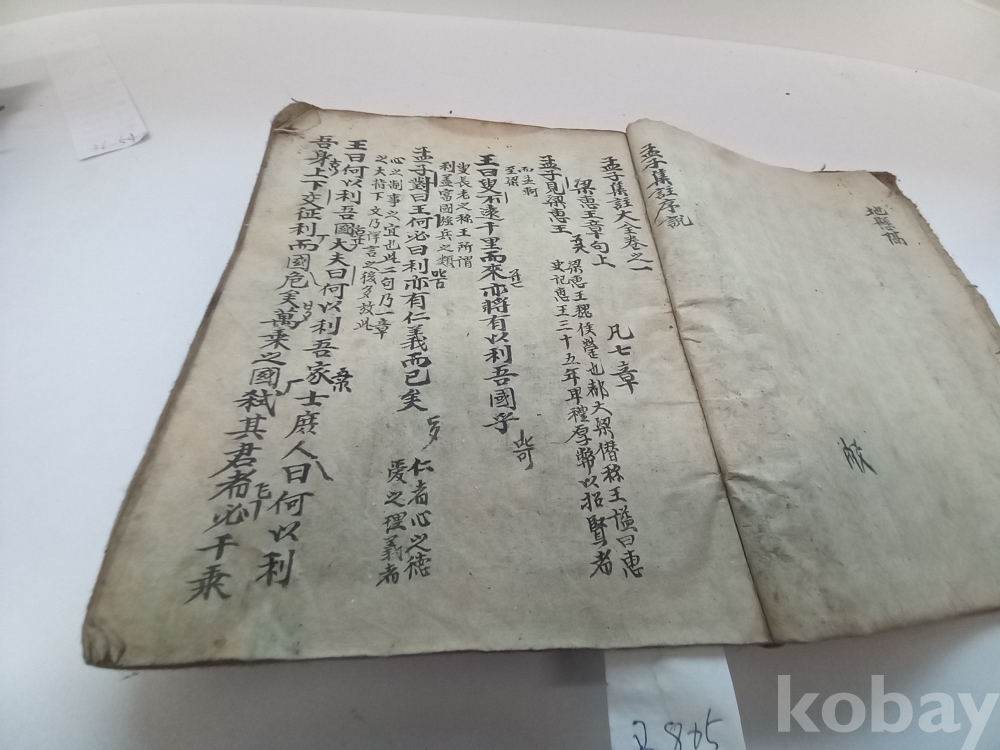 孟子集註序說
孟子集註大全卷之一
梁惠王章句上 凡七章
孟子見梁惠王
梁惠王魏侯罃也都大梁僭稱王諡曰惠
史記惠王三十五年卑禮厚幣以招賢者
而孟軻
至梁
王曰叟不遠千里而來亦將有以利吾國乎
叟長老之稱王所謂
利盖富國强兵之類
孟子對曰王何必曰利亦有仁義而已矣
仁者心之德
愛之理義者
心之制事之宜也此二句乃一章
之大指下文乃詳言之後多放此
王曰何以利吾國大夫曰何以利吾家士庶人曰何以利
吾身上下交征利而國危矣萬乘之國弑其君者必千乘
kobay